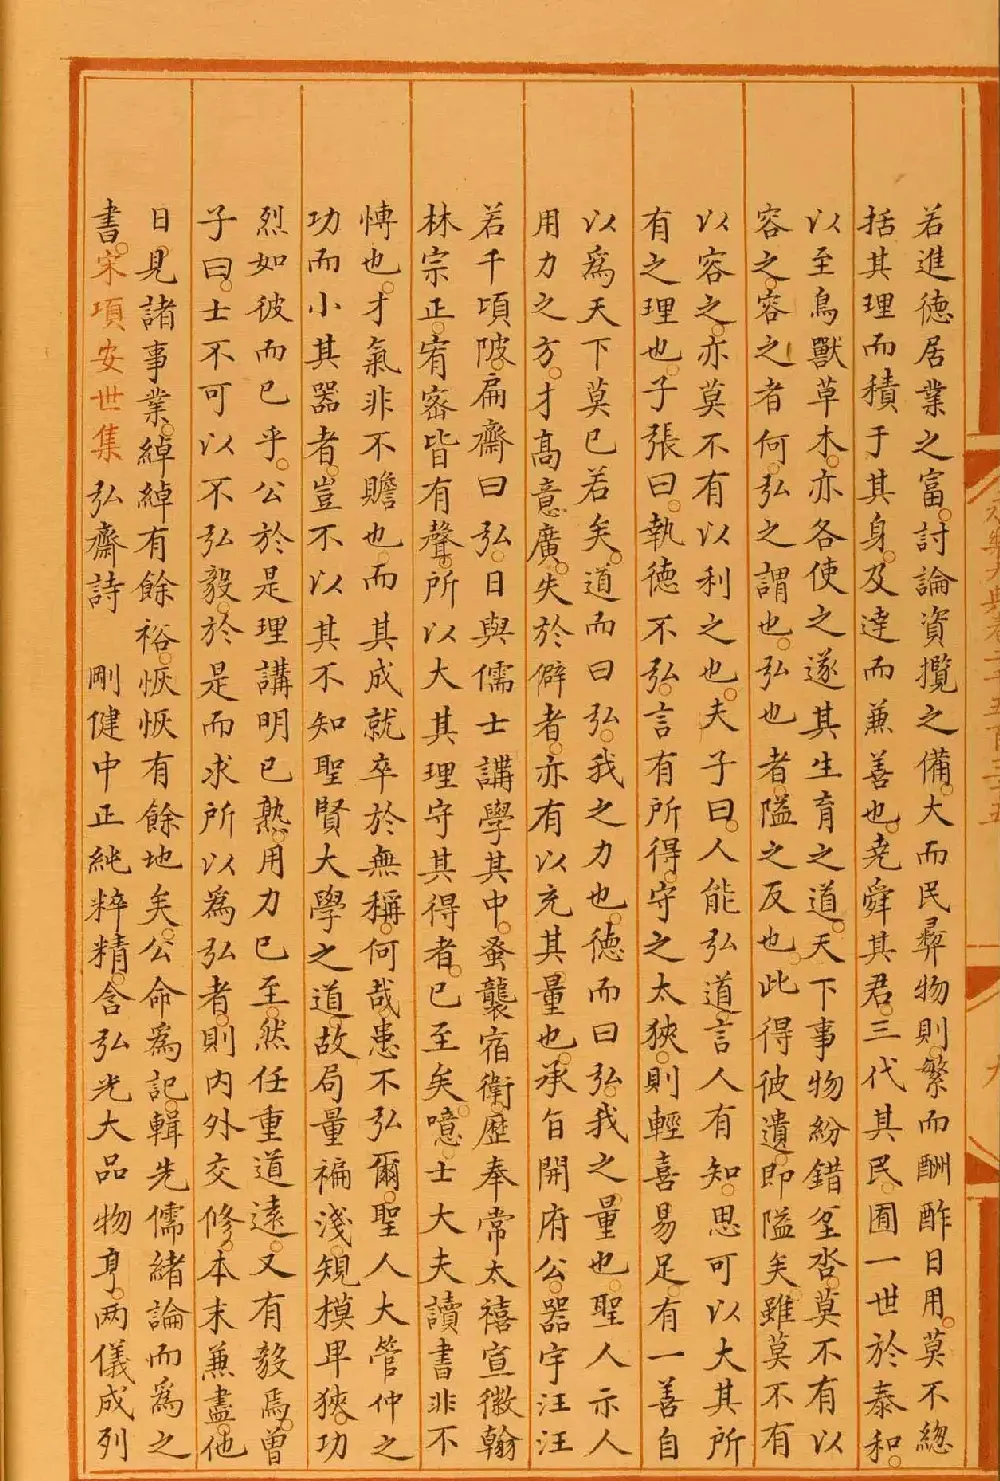 若進德居業之富。討論資攬之備。大而民彛物則。繁而酬酢日用。莫不緫
括其理而積于其身。及達而兼善也。堯舜其君。三代其民。囿一世於泰和。
以至鳥獸草木。亦各使之遂其生育之道。天下事物紛錯坌沓。莫不有以
容之。容之者何。弘之謂也。弘也者。隘之反也。此得彼遺。即隘矣。雖莫不有
以容之。亦莫不有以利之也。夫子曰。人能弘道。言人有知。思可以大其所
有之理也。子張曰。執德不弘。言有所得。守之太狹。則輕喜易足。有一善自
以爲天下莫已若矣。道而曰弘。我之力也。德而曰弘。我之量也。聖人示人
用力之方。才高意廣。失於僻者。亦有以充其量也。承旨開府公。器宇汪汪
若千頃陂。扁齋曰弘。日與儒士講學其中。蚤襲宿衛。歷奉常太禧宣徽翰
林宗正。宥密皆有聲。所以大其理守其得者。已至矣。噫。士大夫讀書非不
慱也。才氣非不贍也。而其成就卒於無稱。何哉。患不弘爾。聖人大管仲之
功而小其器者。豈不以其不知聖賢大學之道。故局量褊淺。規摸卑狹。功
烈如彼而已乎。公於是理講明已熟。用力已至。然任重道逺。又有毅焉。曾
子曰。士不可以不弘毅。於是而求所以爲弘者。則内外交修。本末兼盡。他
日見諸事業。綽綽有餘裕。恢恢有餘地矣。公命爲記。輯先儒緒論而爲之
書。宋項安世集 弘齋詩 剛健中正純粹精。含弘光大品物亨。两儀成列